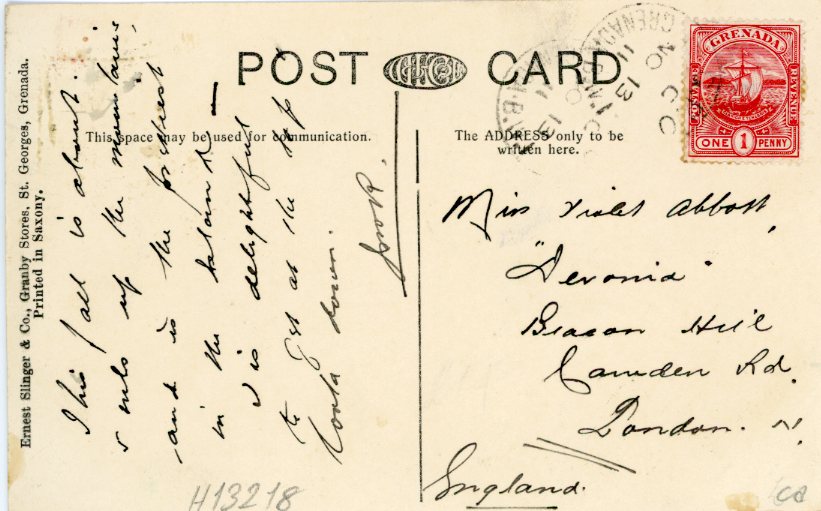 POST CARD
This space may be used for communication.
The ADDRESS only to be
written here.
Ernest Slinger & Co., Granby Stores, St. Georges, Grenada.
Printed in Saxony.
This fall is about
5 mls up the mountains
and is the prettiest
in the Island —
It is delightful
to get at the top
look down.
Miss Violet Abbott,
"Devonia"
Beacon Hill
Camden Rd.
London. N.
England.
GRENADA
POSTAGE
REVENUE
ONE 1 PENNY
GRENADA
NO 13
11
H13218